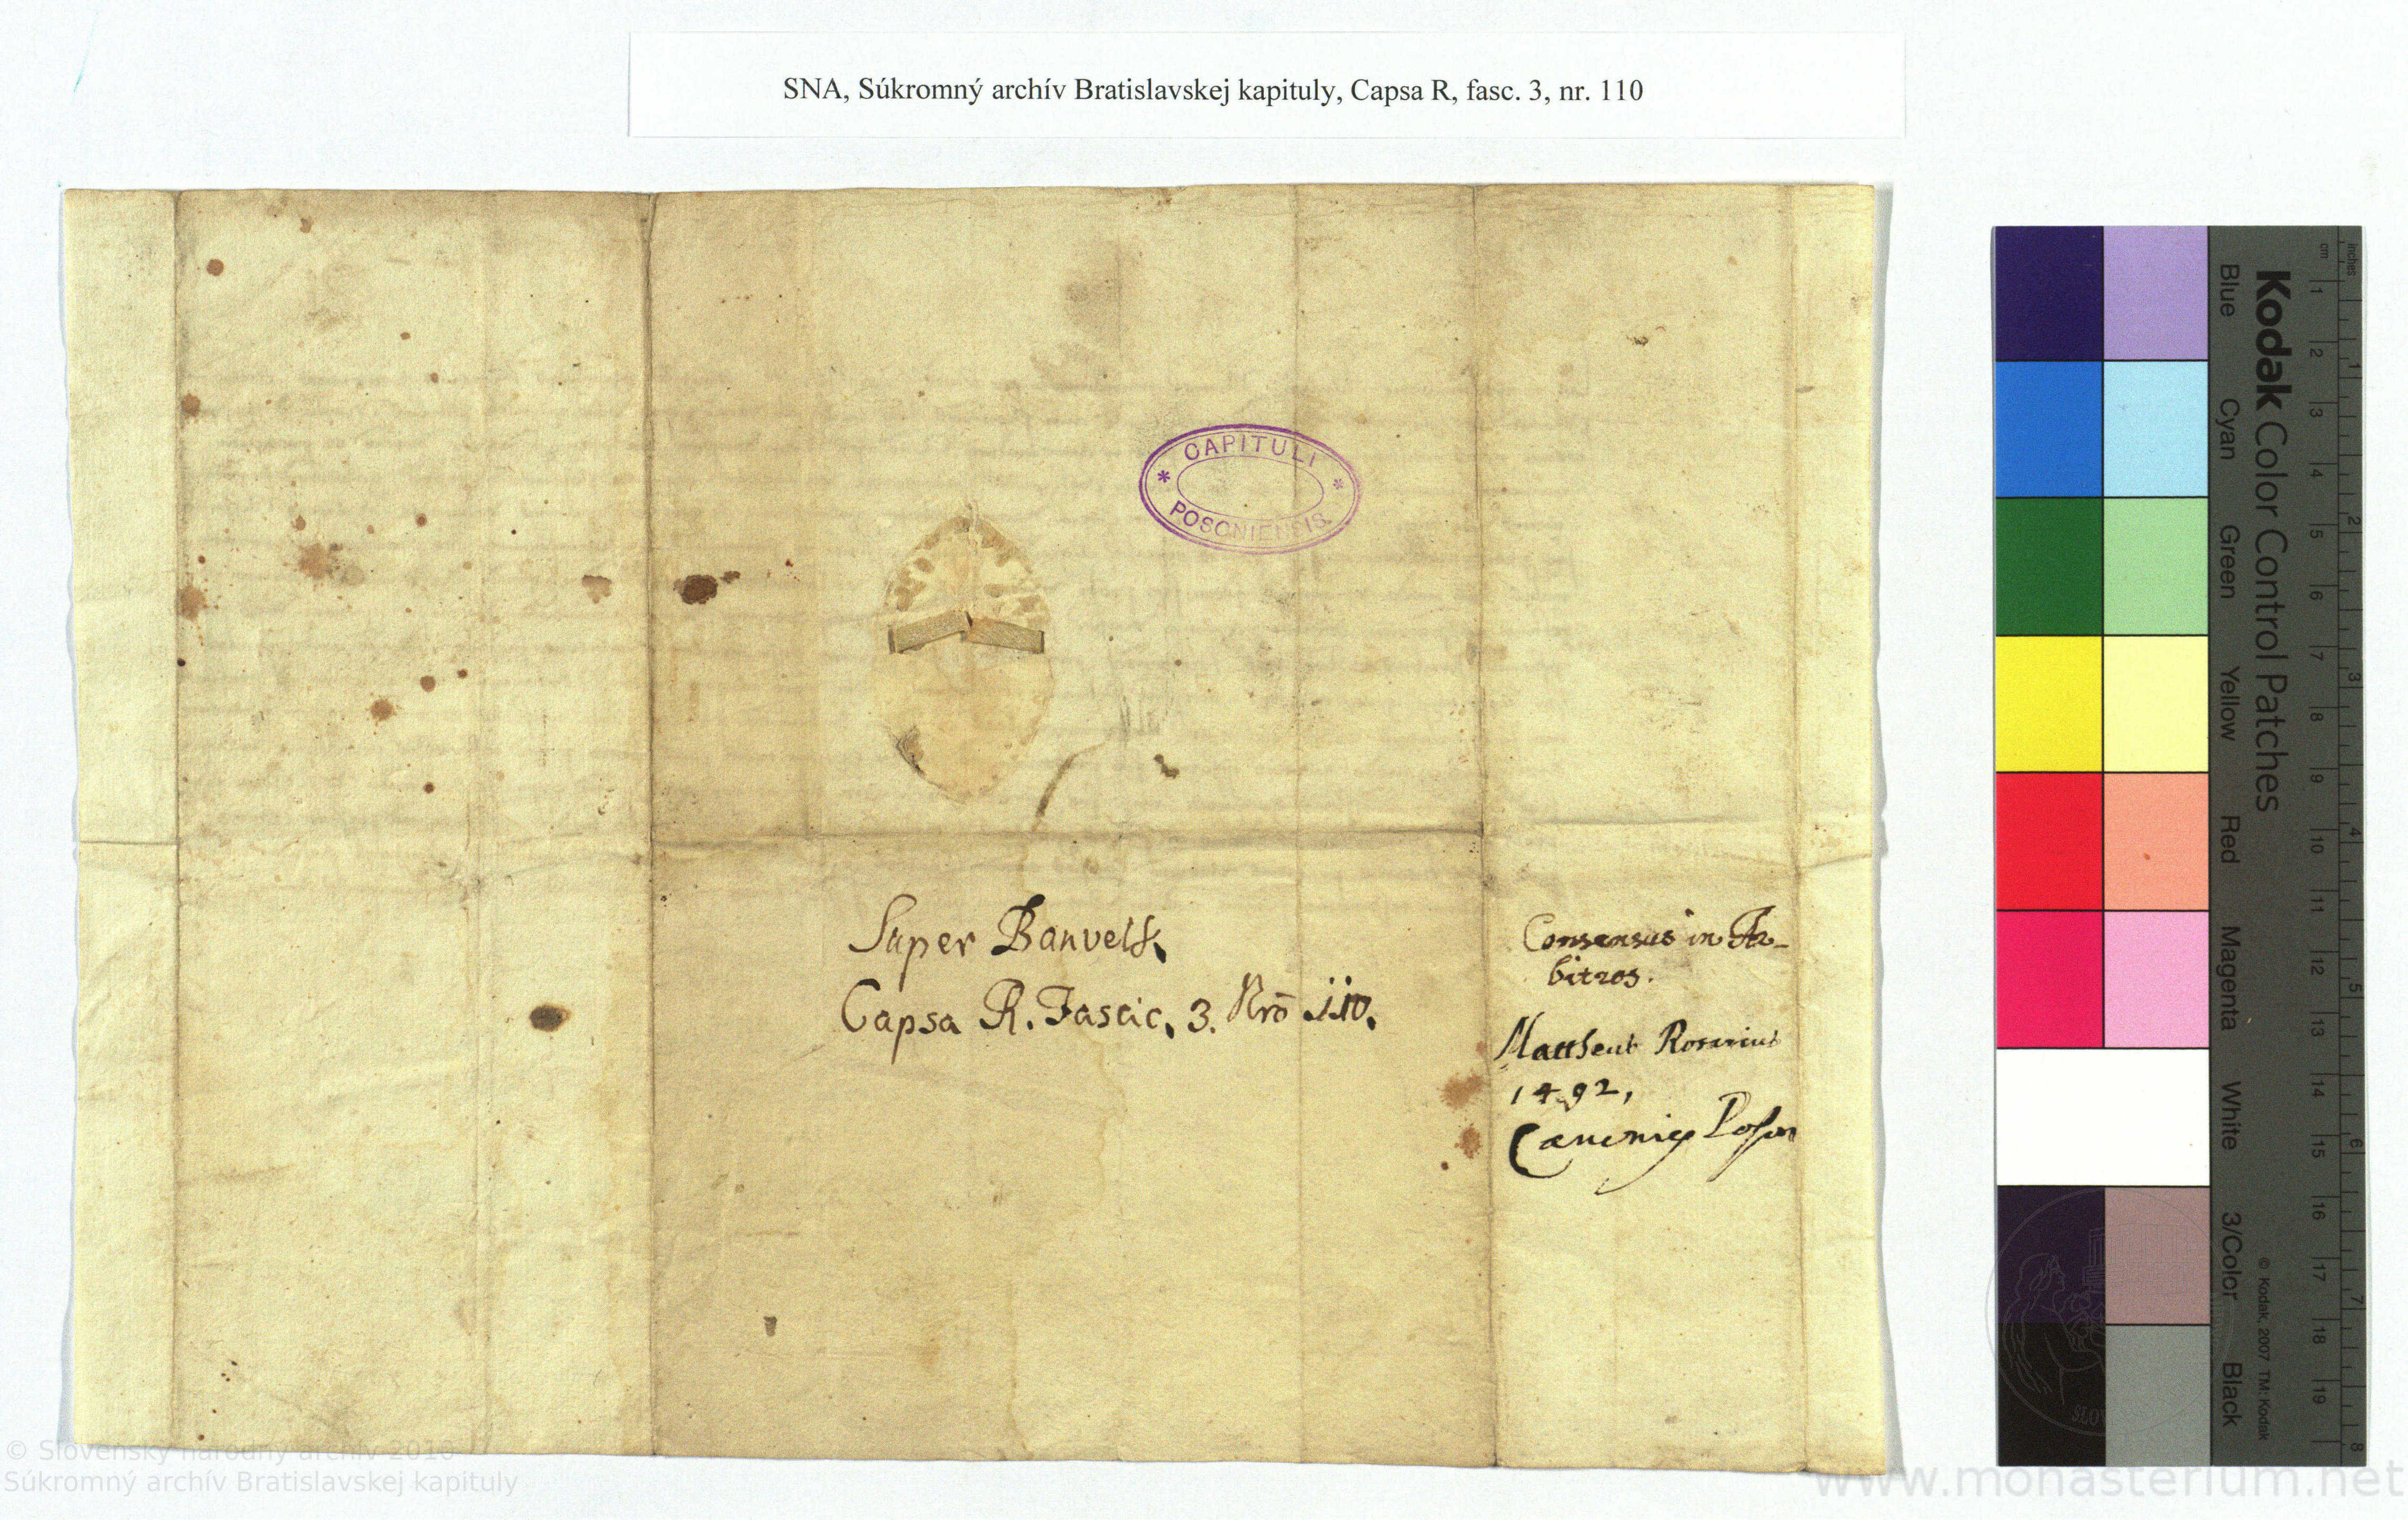 SNA, Súkromný archív Bratislavskej kapituly, Capsa R, fasc. 3, nr. 110
CAPITULI
POSONIENSIS
Super Banvelf.
Capsa R. Fascic. 3. Nrō 110.
Consensus in Ar-
bitros.
Mattheus Rosarius
1492,
Poson
Kodak Color Control Patches
Blue Cyan Green Yellow Red Magenta White 3/Color Black
© Kodak, 2007 TM: Kodak
inches 1 2 3 4 5 6 7 8
cm 1 2 3 4 5 6 7 8 9 10 11 12 13 14 15 16 17 18 19
© Slovenský národný archív 2010
Súkromný archív Bratislavskej kapituly
www.monasterium.net